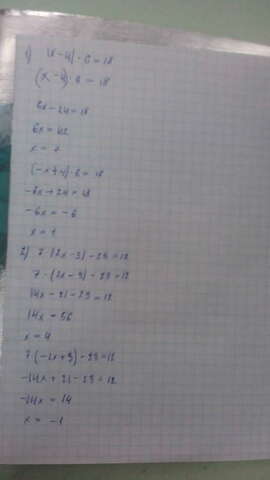 1) |x-4|·6=18
(x-4)·6=18
6x-24=18
6x=42
x=7
(-x+4)·6=18
-6x+24=18
-6x=-6
x=1
2) 7·|2x-3|-23=12
7·(2x-3)-23=12
14x-21-23=12
14x=56
x=4
7(-2x+3)-23=12
-14x+21-23=12
-14x=14
x=-1